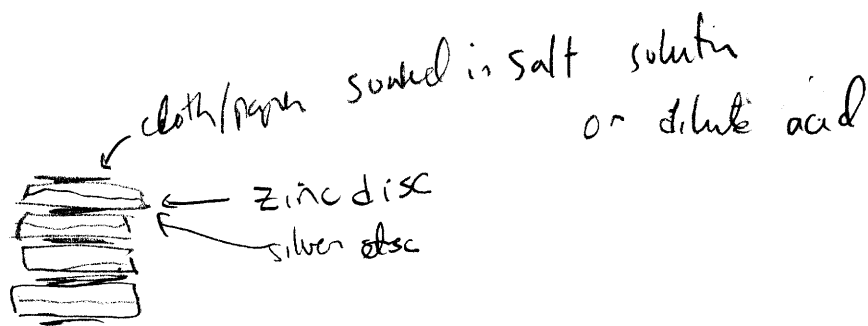 cloth/paper soaked in salt solution
or dilute acid
zinc disc
silver disc